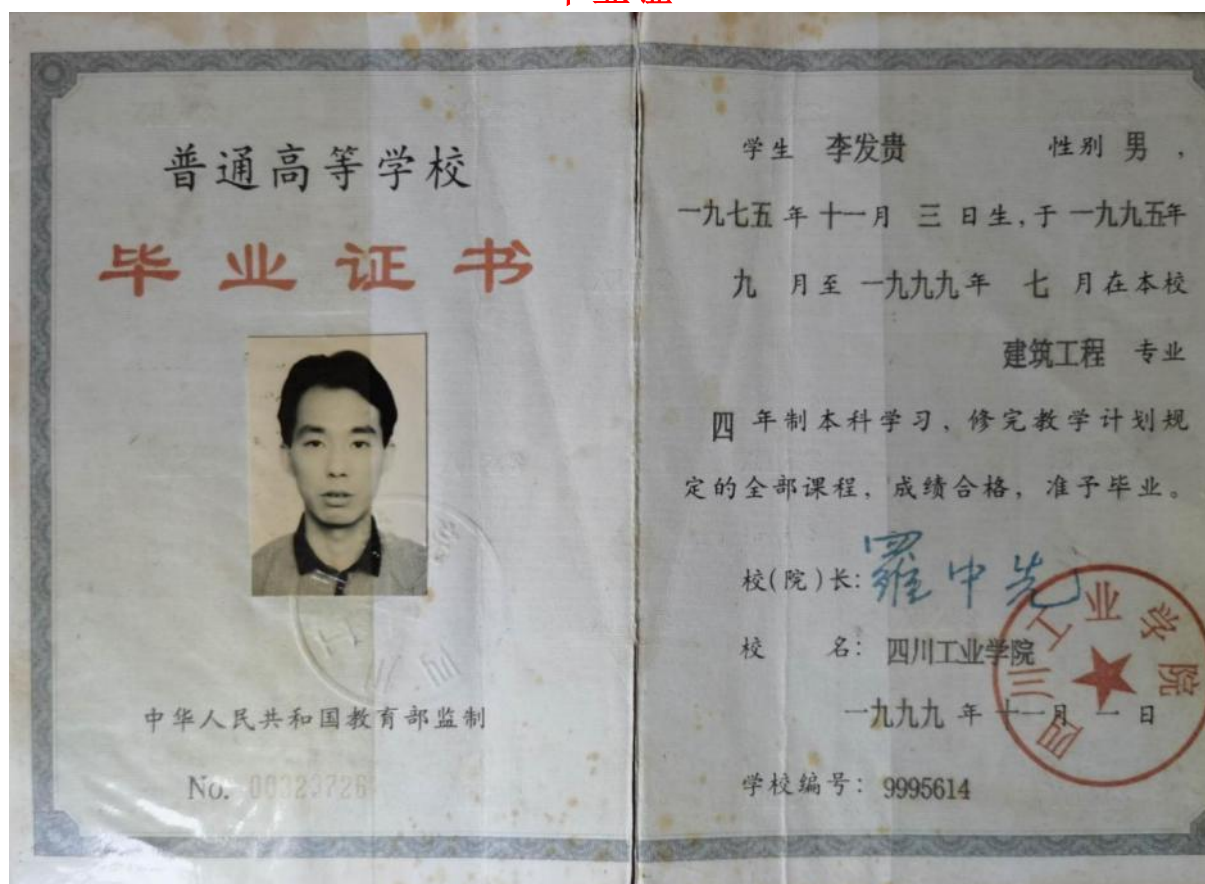 普通高等学校
毕业证书
中华人民共和国教育部监制
No. 00323726
学生 李发贵 性别 男，
一九七五 年 十一 月 三 日生，于 一九九五年
九 月至 一九九九年 七 月在本校
建筑工程 专业
四 年制本科学习，修完教学计划规
定的全部课程，成绩合格，准予毕业。
校(院)长：羅中先
校 名：四川工业学院
一九九九 年 十一 月 一 日
四川工业学院
学校编号：9995614